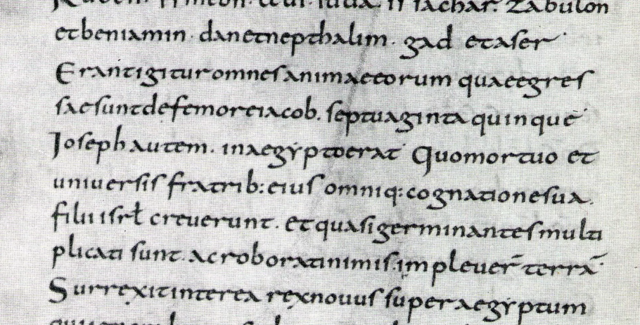 Ruben. symeon. leui. iuda. issachar. Zabulon
et beniamin. dan et nepthalim. gad et aser
Erant igitur omnes animae eorum quae egres
sae sunt de femore iacob. septuaginta quinque
Ioseph autem. in aegypto erat Quo mortuo et
uniuersis fratrib: eius omniq: cognatione sua.
filii isrł creuerunt. et quasi germinantes multi
plicati sunt. ac roborati nimis. impleuer̄ terrā
Surrexit interea rex nouus super aegyptum